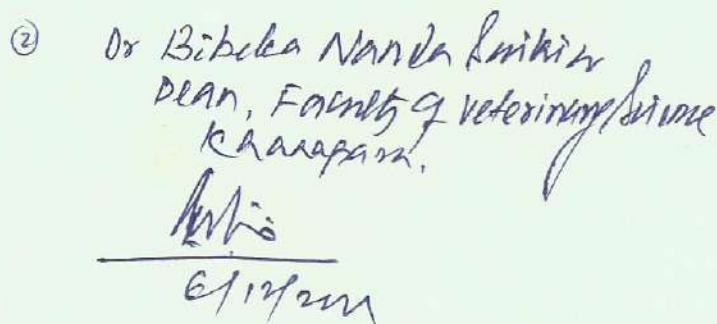 ② Dr Bibeka Nanda Saikia
Dean, Faculty of Veterinary Science
Khanapara.
6/12/2021